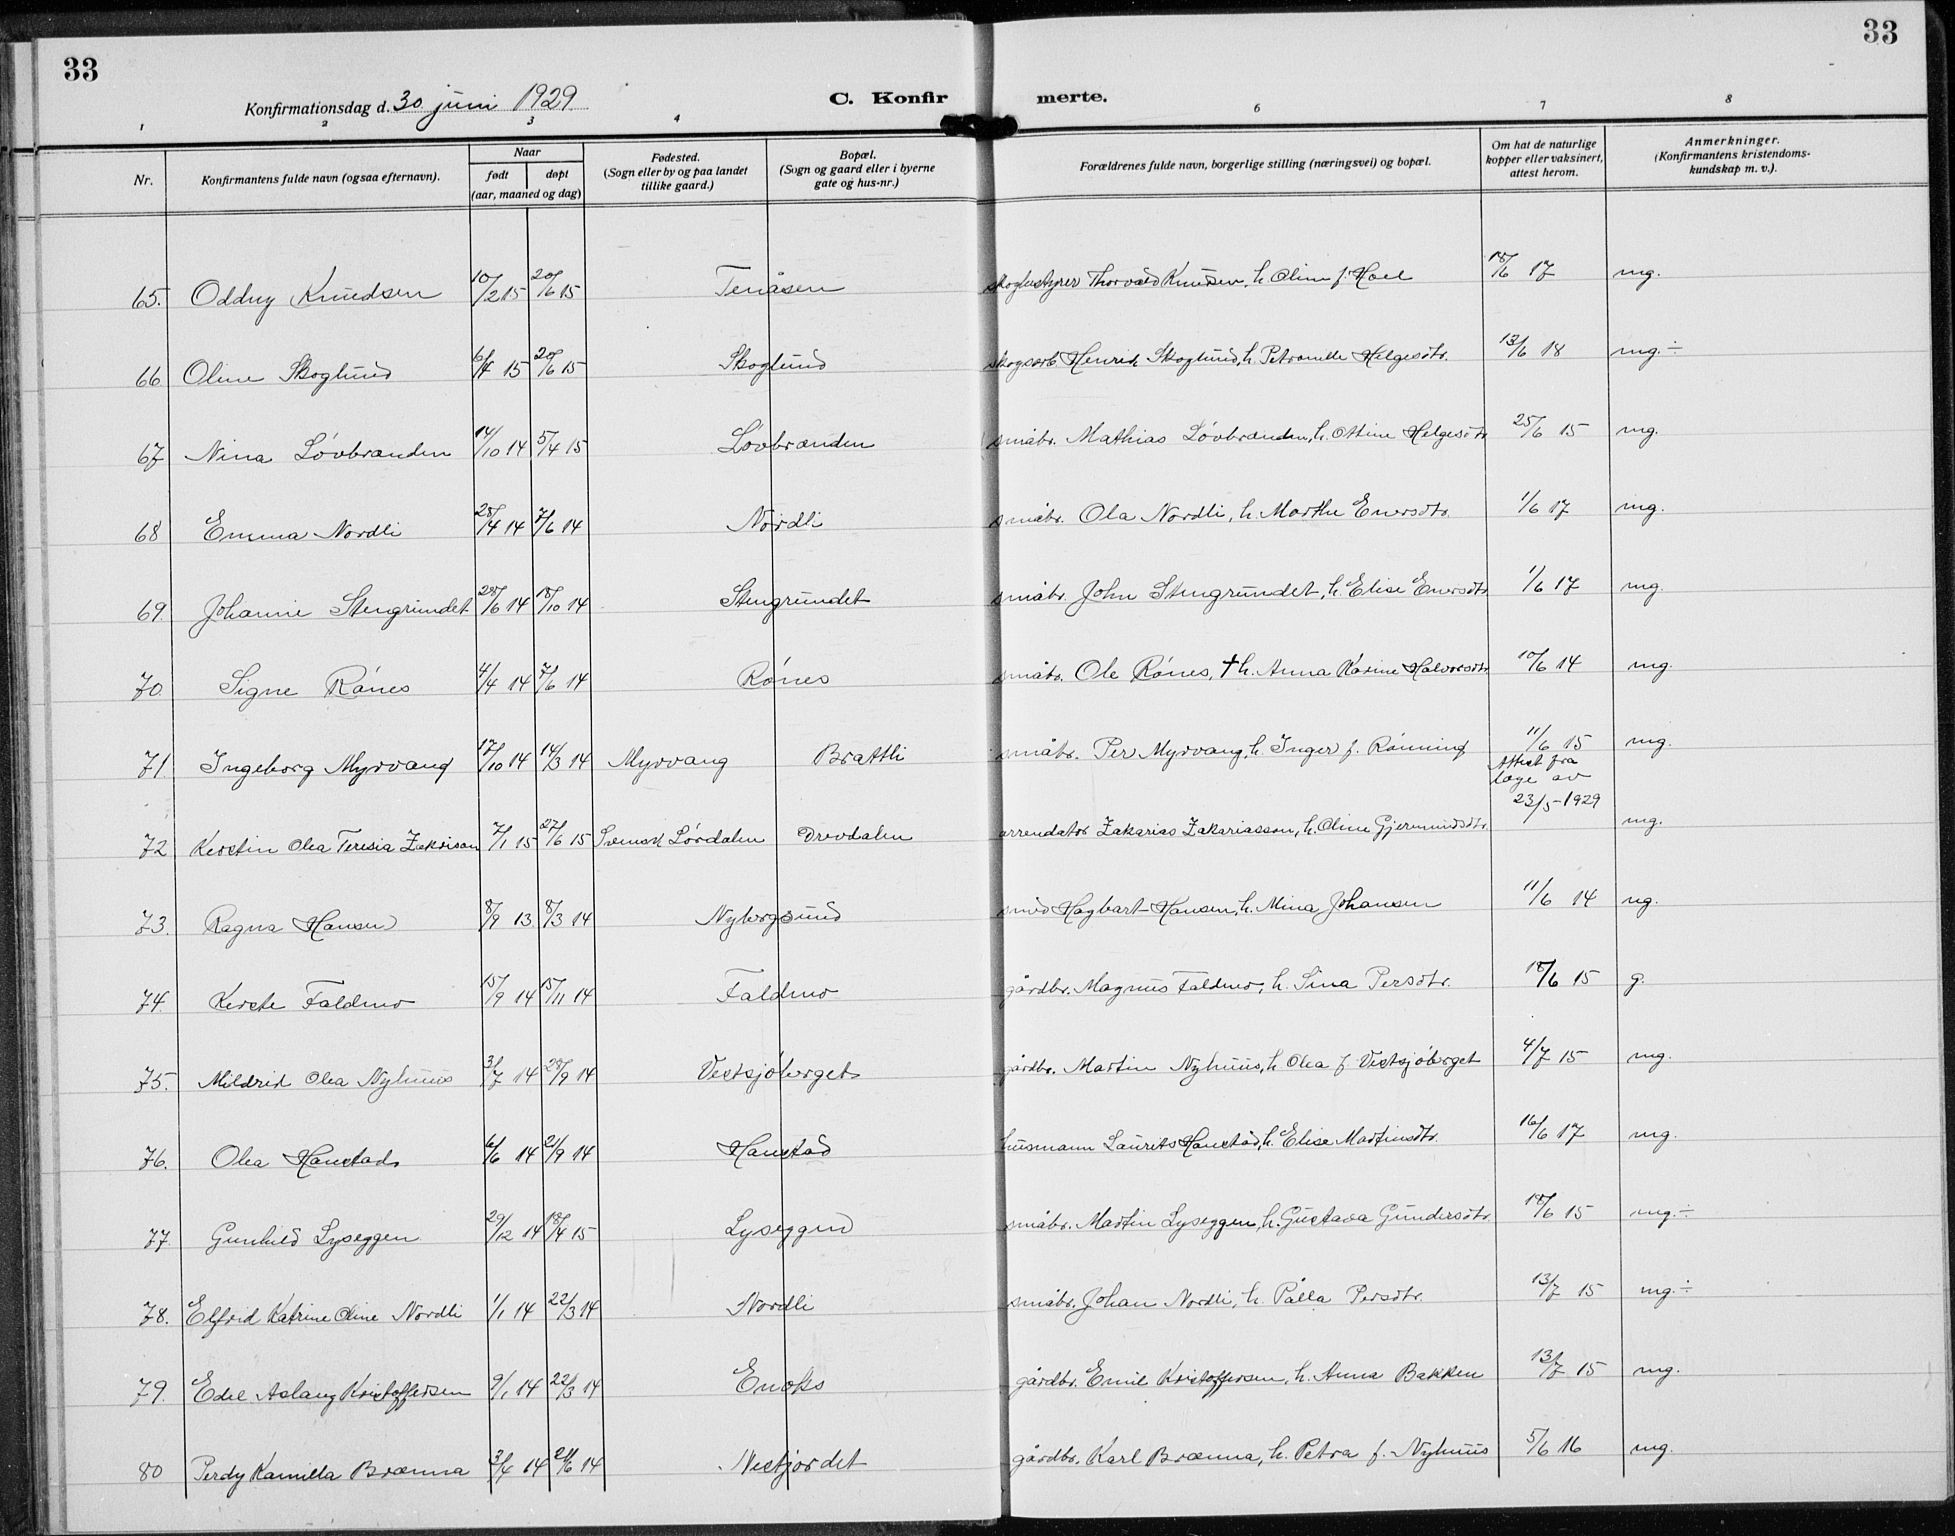 33
33
Konfirmationsdag d. 30 juni 1929
C. Konfirmerte.
1 2 3 4 6 7 8
Nr. Konfirmantens fulde navn (ogsaa efternavn). Naar født døpt (aar, maaned og dag) Fødested. (Sogn eller by og paa landet tillike gaard.) Bopæl. (Sogn og gaard eller i byerne gate og hus-nr.) Forældrenes fulde navn, borgerlige stilling (næringsvei) og bopæl. Om hat de naturlige kopper eller vaksinert, attest herom. Anmerkninger. (Konfirmantens kristendoms-kundskap m. v.).
65. Oddny Knudsen 10/2 15 20/6 15 Tenåsen skogbestyrer Thorvald Knudsen, h. Olim f. Hoel 18/6 17 mg.
66 Oline Skoglund 6/4 15 20/6 15 Skoglund skogsarb. Henrik Skoglund, h. Petronelle Helgesdtr. 13/6 18 mg.÷
67 Nina Lövbranden 14/10 14 5/4 15 Lövbranden småbr. Mathias Lövbranden, h. Ottine Helgesdtr 25/6 15 mg.
68 Emma Nordli 28/4 14 7/6 14 Nordli småbr. Ola Nordli, h. Marthe Enersdtr. 1/6 17 mg.
69. Johanne Stengrundet 28/6 14 18/10 14 Stengrundet småbr. John Stengrundet, h. Elise Enersdtr 1/6 17 mg.
70 Signe Rönes 4/4 14 7/6 14 Rönes småbr. Ole Rönes, † h. Anna Karine Halvorsdtr. 10/6 14 mg.
71 Ingeborg Myrvang 17/10 14 14/3 14 Myrvang Brattli småbr. Per Myrvang, h. Inger f. Rönning 11/6 15 mg.
72 Kerstin Olea Teresia Zakrison 7/1 15 27/6 15 Svensk Lördalen Drevdalen arrendator Zakarias Zakariasson, h. Oline Gjermundsdtr. Attest fra læge av 23/5-1929 mg.
73. Ragna Hansen 8/9 13 8/3 14 Nybergsund smed Hagbart Hansen, h. Mina Johansen 11/6 14 ng.
74. Kerste Faldmo 15/9 14 15/11 14 Faldmo gårdbr. Magnus Faldmo, h. Sina Persdtr. 18/6 15 g.
75. Mildrid Olea Nyhuus 3/7 14 28/9 14 Vestsjöberget gårdbr. Martin Nyhuus, h. Olea f. Vestsjöberget 4/7 15 mg.
76. Olea Hanstad 6/6 14 21/9 14 Hanstad husmann Laurits Hanstad, h. Elise Martinsdtr. 16/6 17 mg.
77. Gunhild Lyseggen 29/12 14 18/4 15 Lyseggen småbr. Martin Lyseggen, h. Gustava Gundersdtr. 18/6 15 mg.÷
78. Elfrid Katrine Oline Nordli 1/1 14 22/3 14 Nordli småbr. Johan Nordli, h. Pålla Persdtr. 13/7 15 mg.÷
79. Edel Aslaug Kristoffersen 9/1 14 22/3 14 Enoks gårdbr. Emil Kristoffersen, h. Anna Bakken 13/7 15 mg.
80 Perdy Kamilla Brænna 3/4 14 21/6 14 Nestjordet gårdbr. Karl Brænna, h. Petra f. Nyhuus 5/6 16 mg.